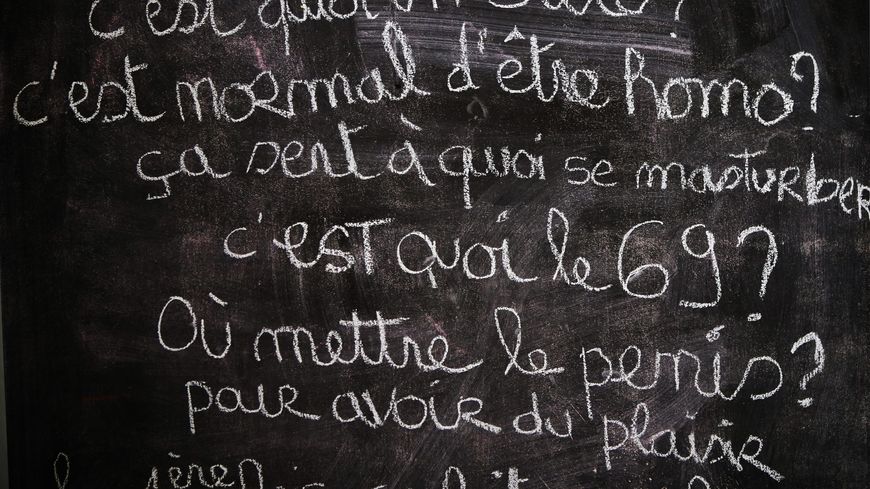 c'est quoi
c'est normal d'être homo?
ça sert à quoi se masturber
c'est quoi le 69?
Où mettre le penis?
pour avoir du plaisir